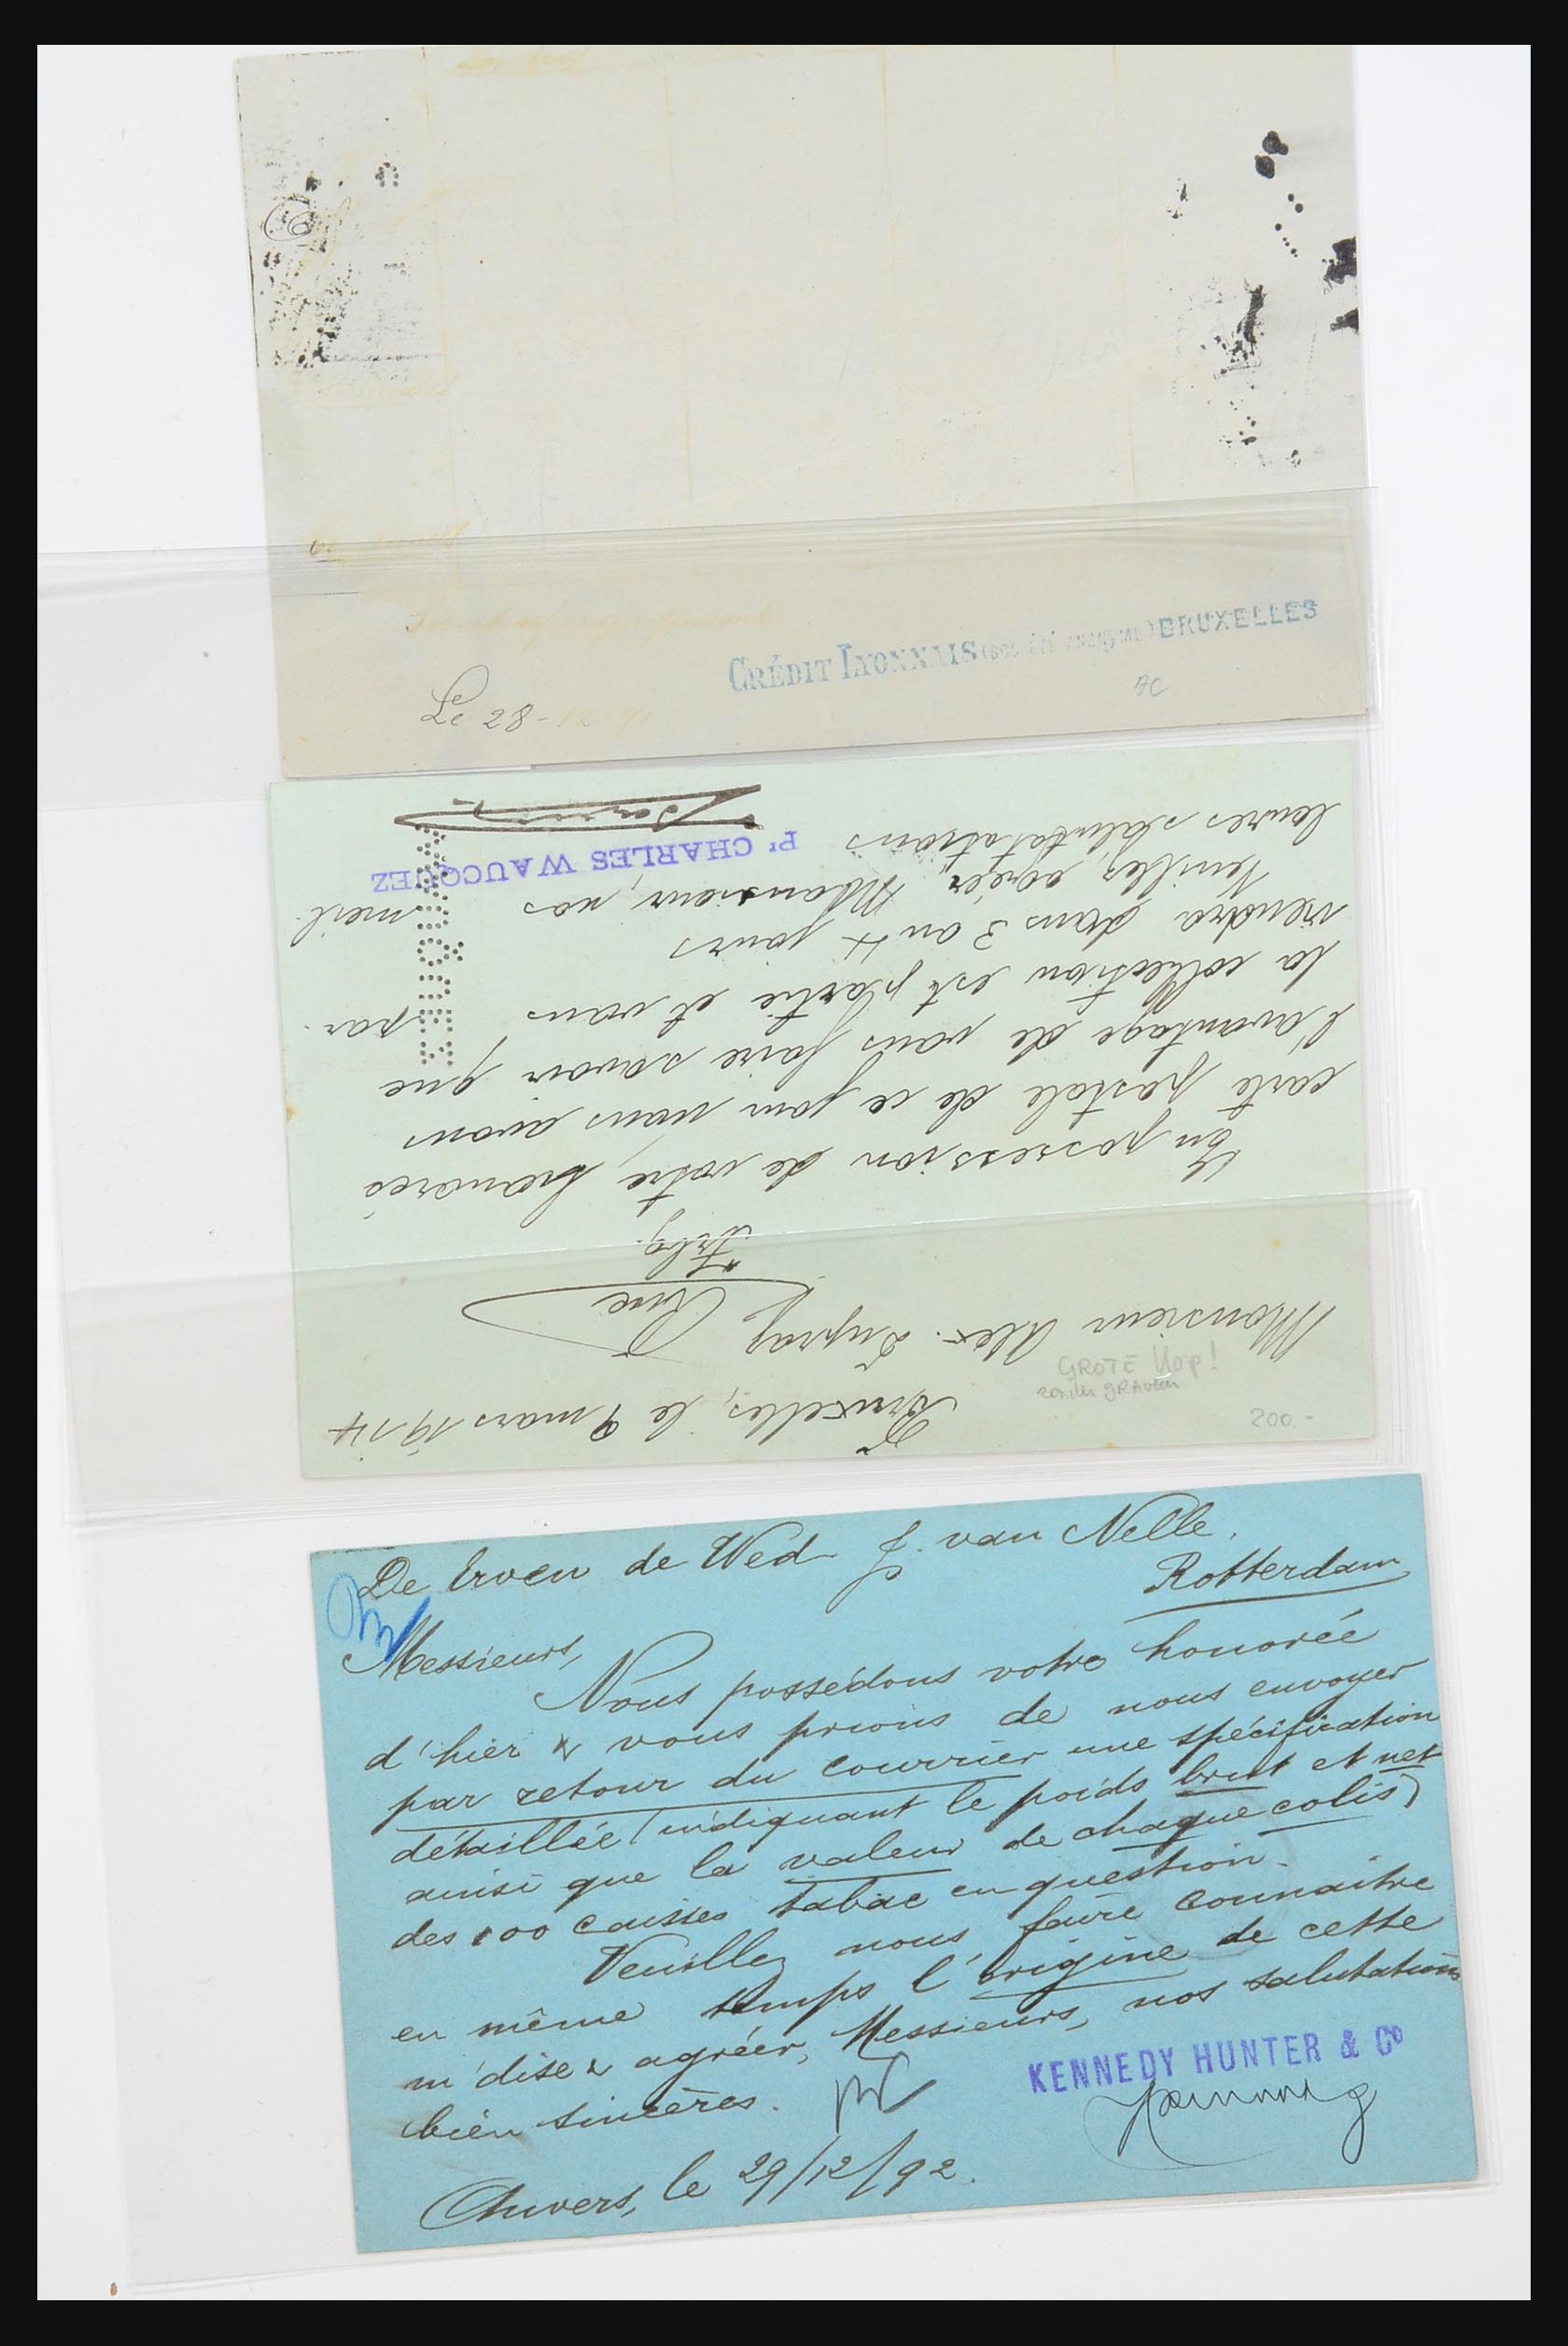 CRÉDIT LYONNAIS BRUXELLES
Le 28-
Bruxelles, le 9 mars 1914
Monsieur Alex. Dupraz
En possession de votre honorée
carte postale de ce jour, nous avons
l'avantage de vous faire savoir que
la collection est partie et vous
par-
viendra dans 3 ou 4 jours
Veuillez agréer, Monsieur, nos
meil-
leures salutations
Pr CHARLES WAUCQUEZ
GROTE Kop!
200.-
De Erven de Wed J. van Nelle,
Rotterdam
Messieurs,
Nous possédons votre honorée
d'hier & vous prions de nous envoyer
par retour du courrier une spécification
détaillée (indiquant le poids brut et net
ainsi que la valeur de chaque colis)
des 100 caisses tabac en question.
Veuillez nous faire connaitre
en même temps l'origine de cette
m'dise & agréer, Messieurs, nos salutations
bien sincères.
KENNEDY HUNTER & Co
Anvers, le 29/12/92.